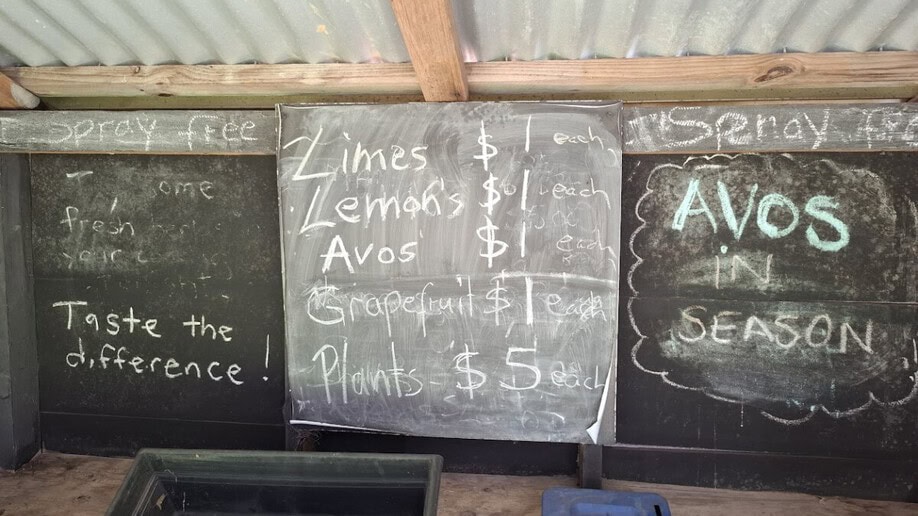 Spray free
ome
fresh
your
Taste the
difference!
Limes $1 each
Lemons $1 each
Avos $1 each
Grapefruit $1 each
Plants - $5 each
Spray
AVOS
iN
SEASON